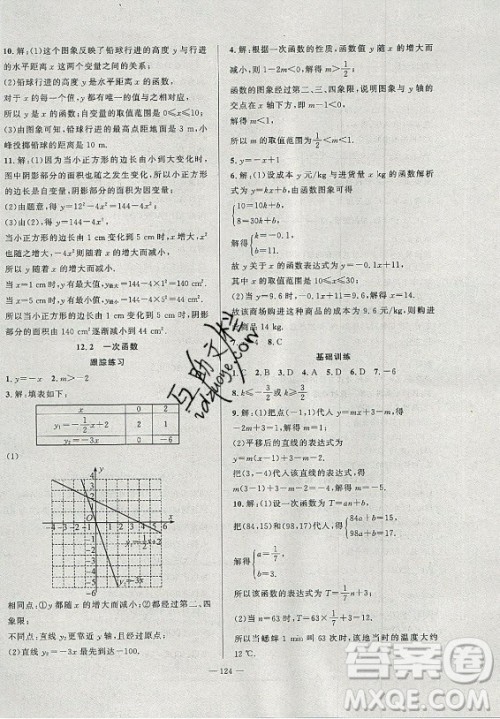 10. 解:(1)这个图象反映了铅球行进的高度 y 与行进
的水平距离 x 这两个变量之间的关系;
(2)铅球行进的高度 y 是 x 的函数,
对于 x 的每一个值,y 都有唯一的值与之对应,
所以 y 是 x 的函数;自变量的取值范围 0≤x≤10;
(3)由图象可知,铅球行进的最高点距地面是 3 m,
小峰投掷铅球的距离是 10 m.
11. 解:(1)因为当小正方形的边长由小到大变化时,
图中阴影部分的面积也随之变化,所以小正方形的
边长是自变量,阴影部分的面积是因变量;
(2)由题意,得 y=12²-4x²=144-4x²;
(3)由(2)知,y=144-4x²,
当小正方形的边长由 1 cm 变化到 5 cm 时,x 增
大,x² 也随之增大,4x² 也随着增大,
所以 y 随着 x 的增大而减小,
当 x=1 cm 时,y 有最大值,y最大=144-4×1²=140 cm².
当 x=5 cm 时,y 有最小值,y最小=144-4×5²=44 cm².
所以当小正方形的边长由 1 cm 变化到 5 cm 时,
阴影部分的面积由 140 cm² 变到 44 cm².
12.2 一次函数
跟踪练习
1. y=-x 2. m>-2
3. 解:填表如下:
x 0 2
y₁=-1/2x+2 2 1
y₂=-3x 0 -6
(1)
相同点:①y 随 x 的增大而减小;②都经过第二、四
象限;
不同点:y₂ 更靠近 y 轴,与 y 轴的夹角更小;
(2)直线 y₂=-3x 最先到达-100.
4. 解:根据一次函数的性质,函数值 y 随 x 的增大而
减小,则 1-2m<0,解得 m>1/2;
函数的图象经过第二、三、四象限,说明图象与 y 轴的
交点在 x 轴下方,即 m-1<0,解得 m<1,
所以 m 的取值范围为 1/2<m<1.
5. y=-x+1
6. 解:(1)设进价成本 y/kg 与进货 x/kg 的函数解析
式为 y=kx+b,由图象可得
{10=10k+b,
8=30k+b,
解得 {k=-0.1,
b=11,
故 y 关于 x 的函数表达式为 y=-0.1x+11,
其中 x 的取值范围为 10≤x≤30;
(2)当 y=9.6 时,9.6=-0.1x+11,x=14,
故该商场购进这种商品的成本 9.6 元/kg,则购进
此商品 14 kg.
8. C
基础训练
1. C 2. B 3. D 4. C 5. B 6. D 7. -6
8. k≤-3/2
9. 解:(1)把(点)(1,2)代入 y=mx-3m²,
(2)平移后的直线的表达式为
10. 解:(1)设一次函数为 T=an+b,
把(84,15)和(98,17)代入,得
{84a+b=15,
98a+b=17,
解得 {a=1/7,
b=3,
所以该函数的表达式为 T=1/7n+3;
(2)当 n=63 时,T=63×1/7+3=12,
所以当蟋蟀 1 min 叫 63 次时,该地当时的温度大约
12 ℃.
— 124 —
互助文档
vdzuoye.com
答案圈
MXQE.COM